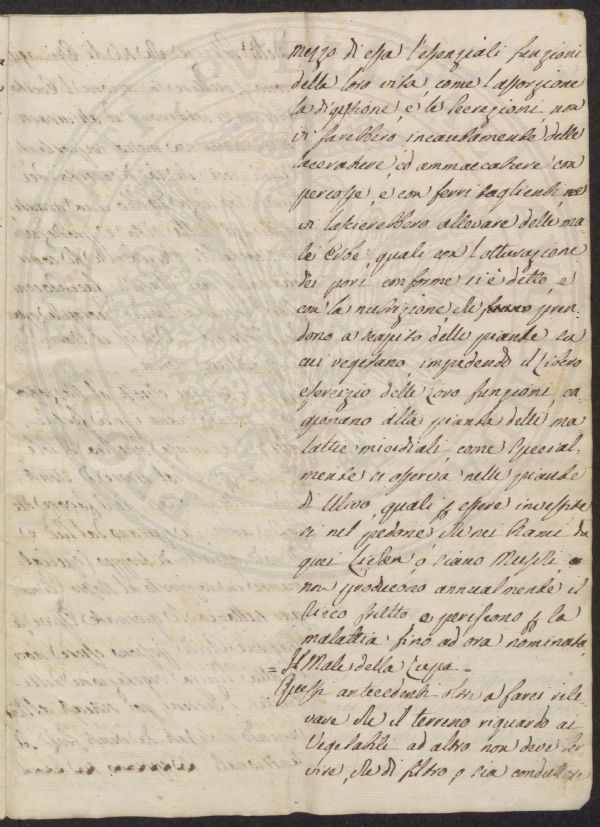 mezzo di essa l'essenziali funzioni
della loro vita, come l'assorzione
la digestione, e le secrezioni, non
vi farebbero incautamente delle
lacerature, ed ammaccature con
percosse, e con ferri taglienti, ne
vi lascierebbero allevare delle ma-
le Erbe, quali con l'otturazione
dei pori conforme si è detto, e
con la nutrizione, che pren-
dono a scapito delle piante su
cui vegetano, impedendo il libero
esercizio delle loro funzioni, ca-
gionano alla pianta delle ma-
lattie micidiali, come special-
mente si osserva nelle piante
di Ulivo, quali p essere investite
si nel pedone, che nei Rami da
quei Lichen, o siano Muschi,
non producono annualmente il
ricco frutto, e periscono p la
malattia fino ad ora nominata
= Il Male della Lupa =
Questi antecedenti oltre a farci rile-
vare che il terreno riguardo ai
Vegetabili ad altro non deve ser-
vire, che di filtro, o sia conduttore